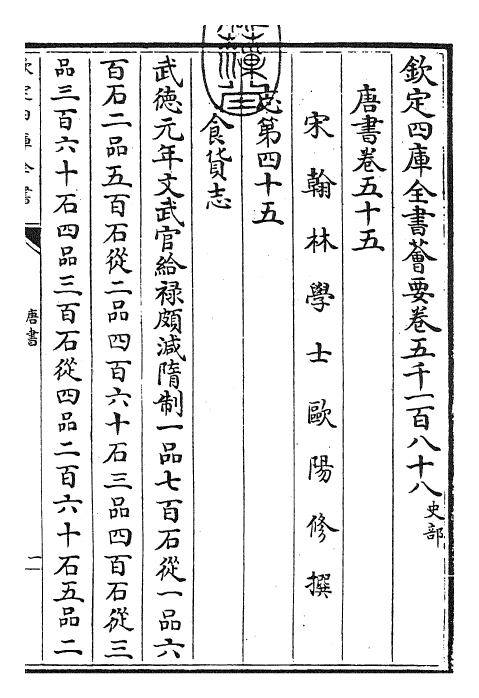 欽定四庫全書薈要卷五千一百八十八 史部
唐書卷五十五
宋翰林學士歐陽修撰
志第四十五
食貨志
武德元年文武官給祿頗減隋制一品七百石從一品六
百石二品五百石從二品四百六十石三品四百石從三
品三百六十石四品三百石從四品二百六十石五品二
欽定四庫全書
唐書
一